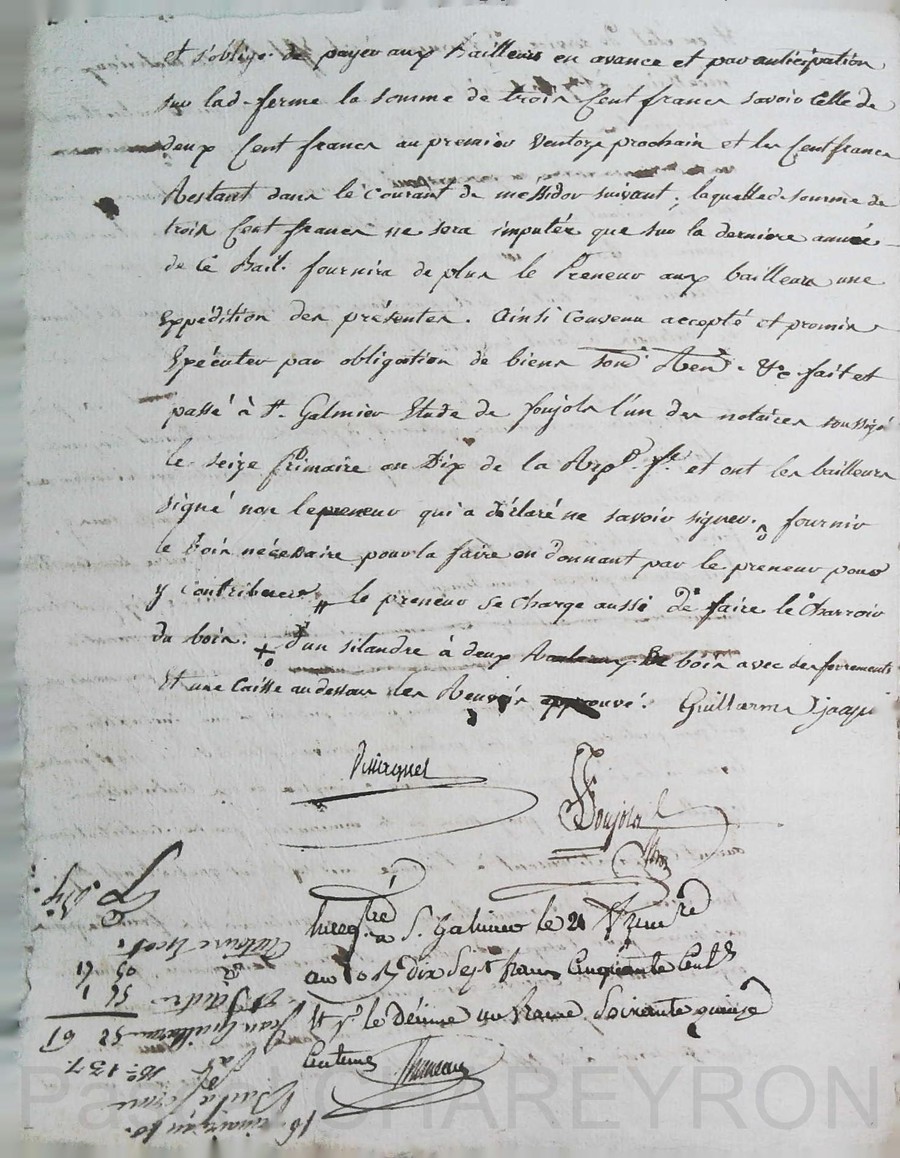 et s'oblige de payer aux Bailleurs en avance et par anticipation
sur lad. ferme la somme de trois Cent francs savoir Celle de
deux Cent francs au premier Ventose prochain et les Cent francs
Restant dans le Courant de messidor suivant, laquelle d. somme de
trois Cent francs ne sera imputée que sur la derniere année
de Ce Bail. fournira de plus le Preneur aux bailleurs une
Expédition des présentes. Ainsi Convenu accepté et promis
Exécuter par obligation de biens soud. Ren. &c. fait et
passé à St. Galmier Etude de Foujols l'un des notaires soussigé
le seize frimaire an Dix de la Rep. f.se et ont les bailleurs
signé non le preneur qui a déclaré ne savoir signer. fournir
le bois nécessaire pour la faire en donnant par le preneur pour
y contribuer le preneur se charge aussi de faire le Charroir
du bois. + d'un silandre à deux bois avec ses ferrements
Et une Caisse au dessus les approuvé. Guillarme Jaqui
Foujols
Enreg.tré à St. Galmier le 21 frim.re
an 10 dix Sept francs Cinquante Cent.s
Et p.r le Décime un franc Soixante quinze
Centimes
16 frimaire an 10.
Bail a ferme
No. 137
Jean Guillarme
52 61
51 1
Antoine
Paul CHAREYRON